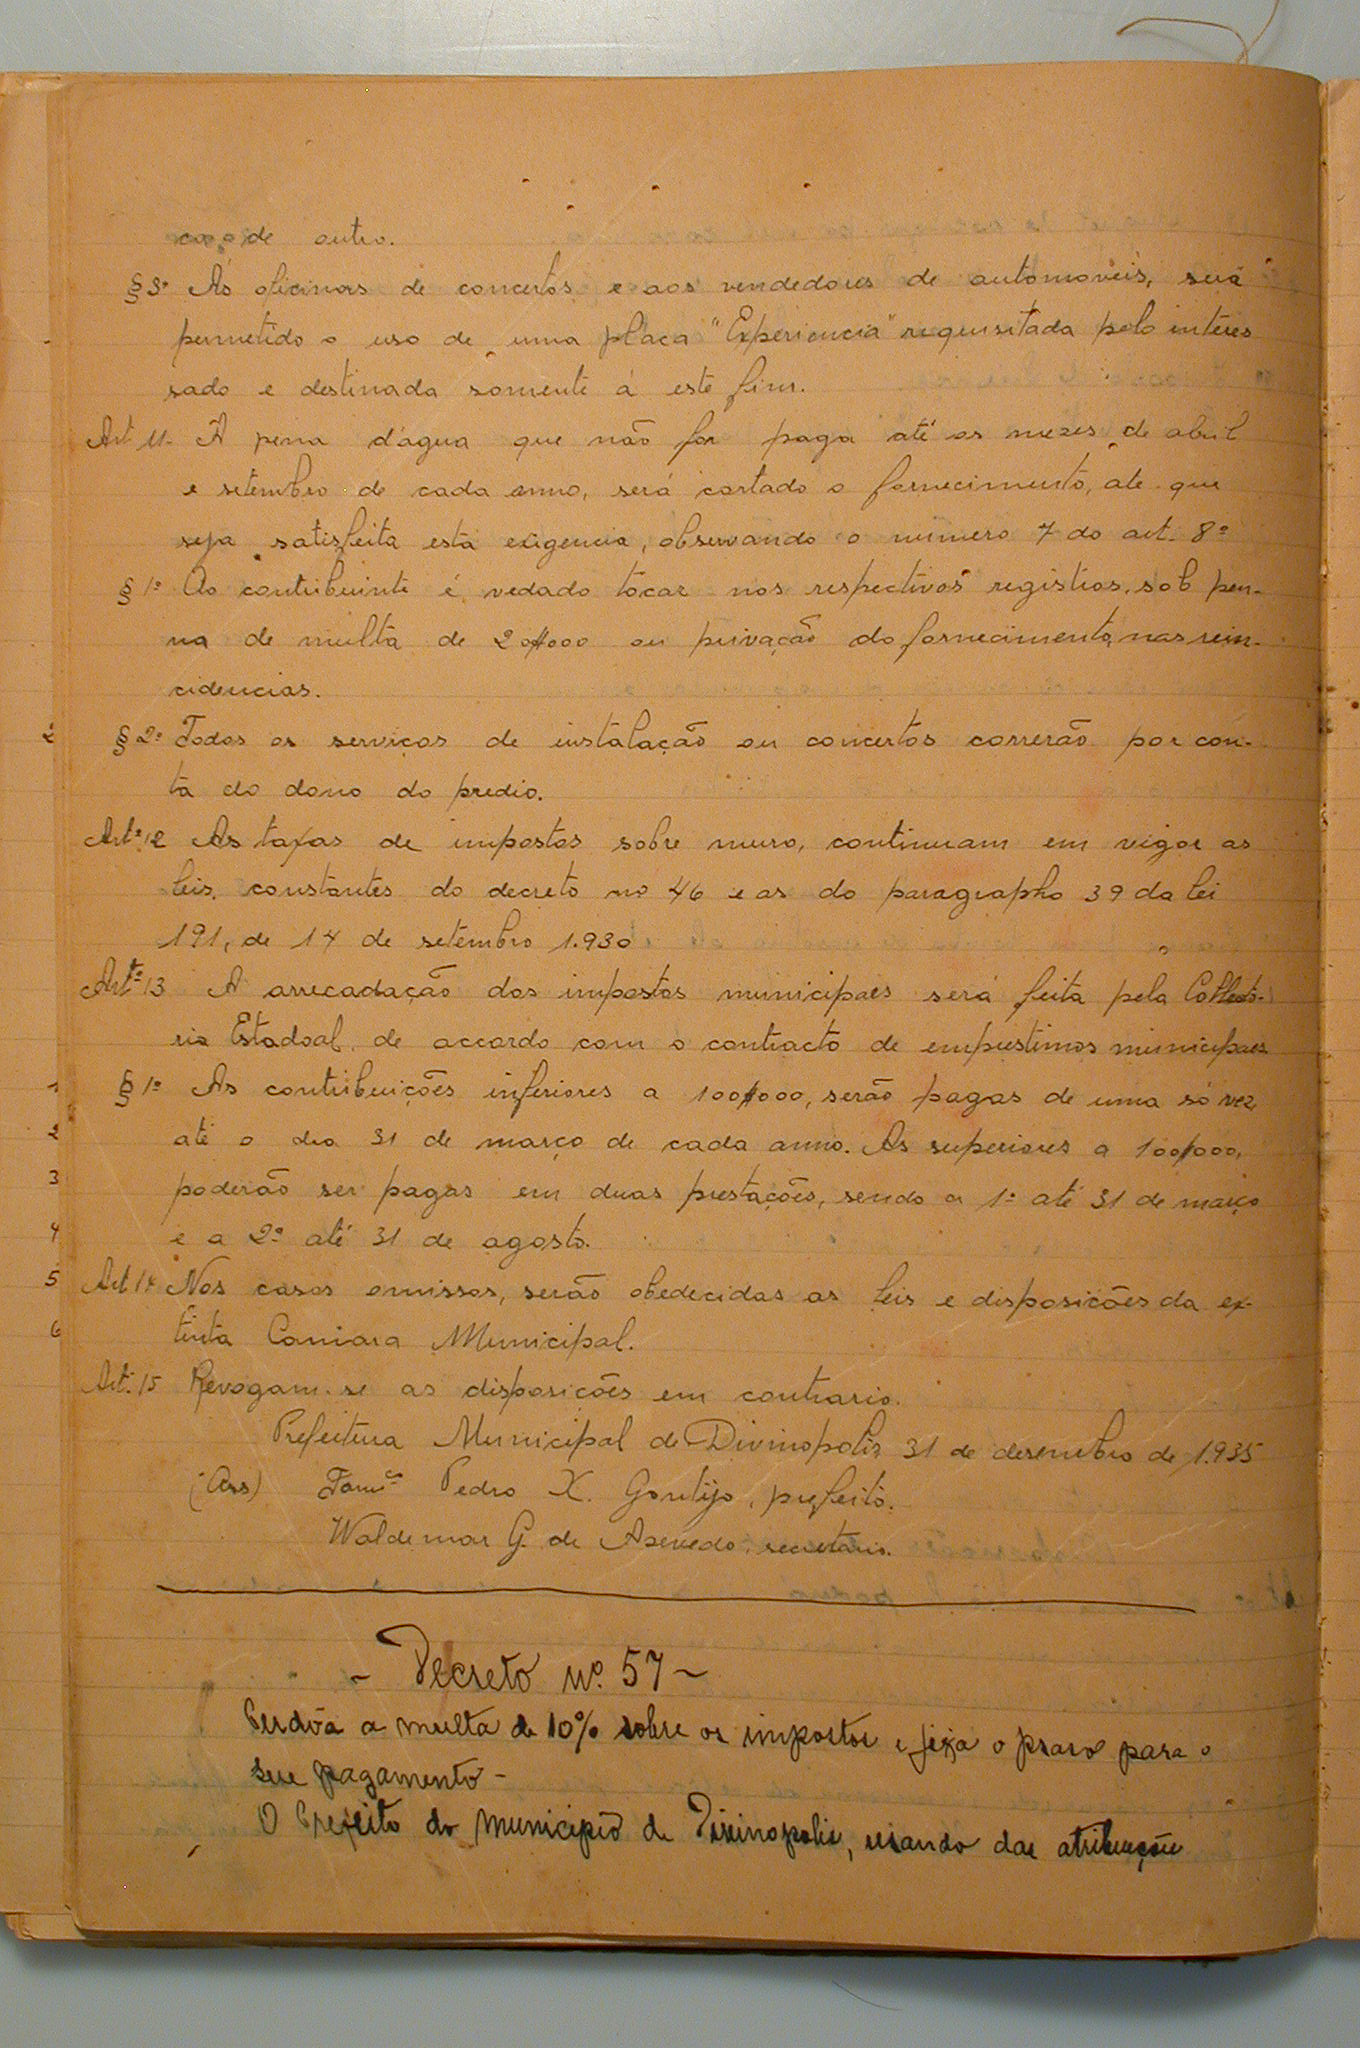 de outro.
§ 3º Ás oficinas de concertos e aos vendedores de automoveis, será
permetido o uso de uma placa "Experiencia" requisitada pelo interes
sado e destinada somente á este fim.
Art 11- A pena d'agua que não for paga até os mezes de abril
e setembro de cada anno, será cortado o fornecimento, ate que
seja satisfeita esta exigencia, observando o numero 7 do art. 8º
§ 1º Ao contribuinte é vedado tocar nos respectivos registros, sob pen-
na de multa de 20$000 ou privação do fornecimento, nas rein-
cidencias.
§ 2º Todos os serviços de instalação ou concertos correrão por con-
ta do dono do predio.
Artº 12 As taxas de impostos sobre muro, continuam em vigor as
leis, constantes do decreto nº 46 e as do paragrapho 39 da lei
191, de 14 de setembro 1.930
Artº 13 A arrecadação dos impostos municipaes será feita pela Collecto-
ria Estadoal, de accordo com o contracto de emprestimos municipaes
§ 1º As contribuições inferiores a 100$000, serão pagas de uma só vez,
até o dia 31 de março de cada anno. As superiores a 100$000,
poderão ser pagas em duas prestações, sendo a 1ª até 31 de março
e a 2ª até 31 de agosto.
Art 14 Nos casos omissos, serão obedecidas as leis e disposições da ex-
tinta Camara Municipal.
Art. 15 Revogam-se as disposições em contrario.
Prefeitura Municipal de Divinopolis, 31 de desembro de 1.935
(Ass) Pedro X. Gontijo, prefeito.
Waldemar G. de Azevedo, secretario.
- Decreto nº. 57 -
Perdôa a multa de 10% sobre os impostos e fixa o praso para o
seu pagamento -
O Prefeito do Municipio de Divinopolis, usando das atribuições
2
1
2
3
4
5
6